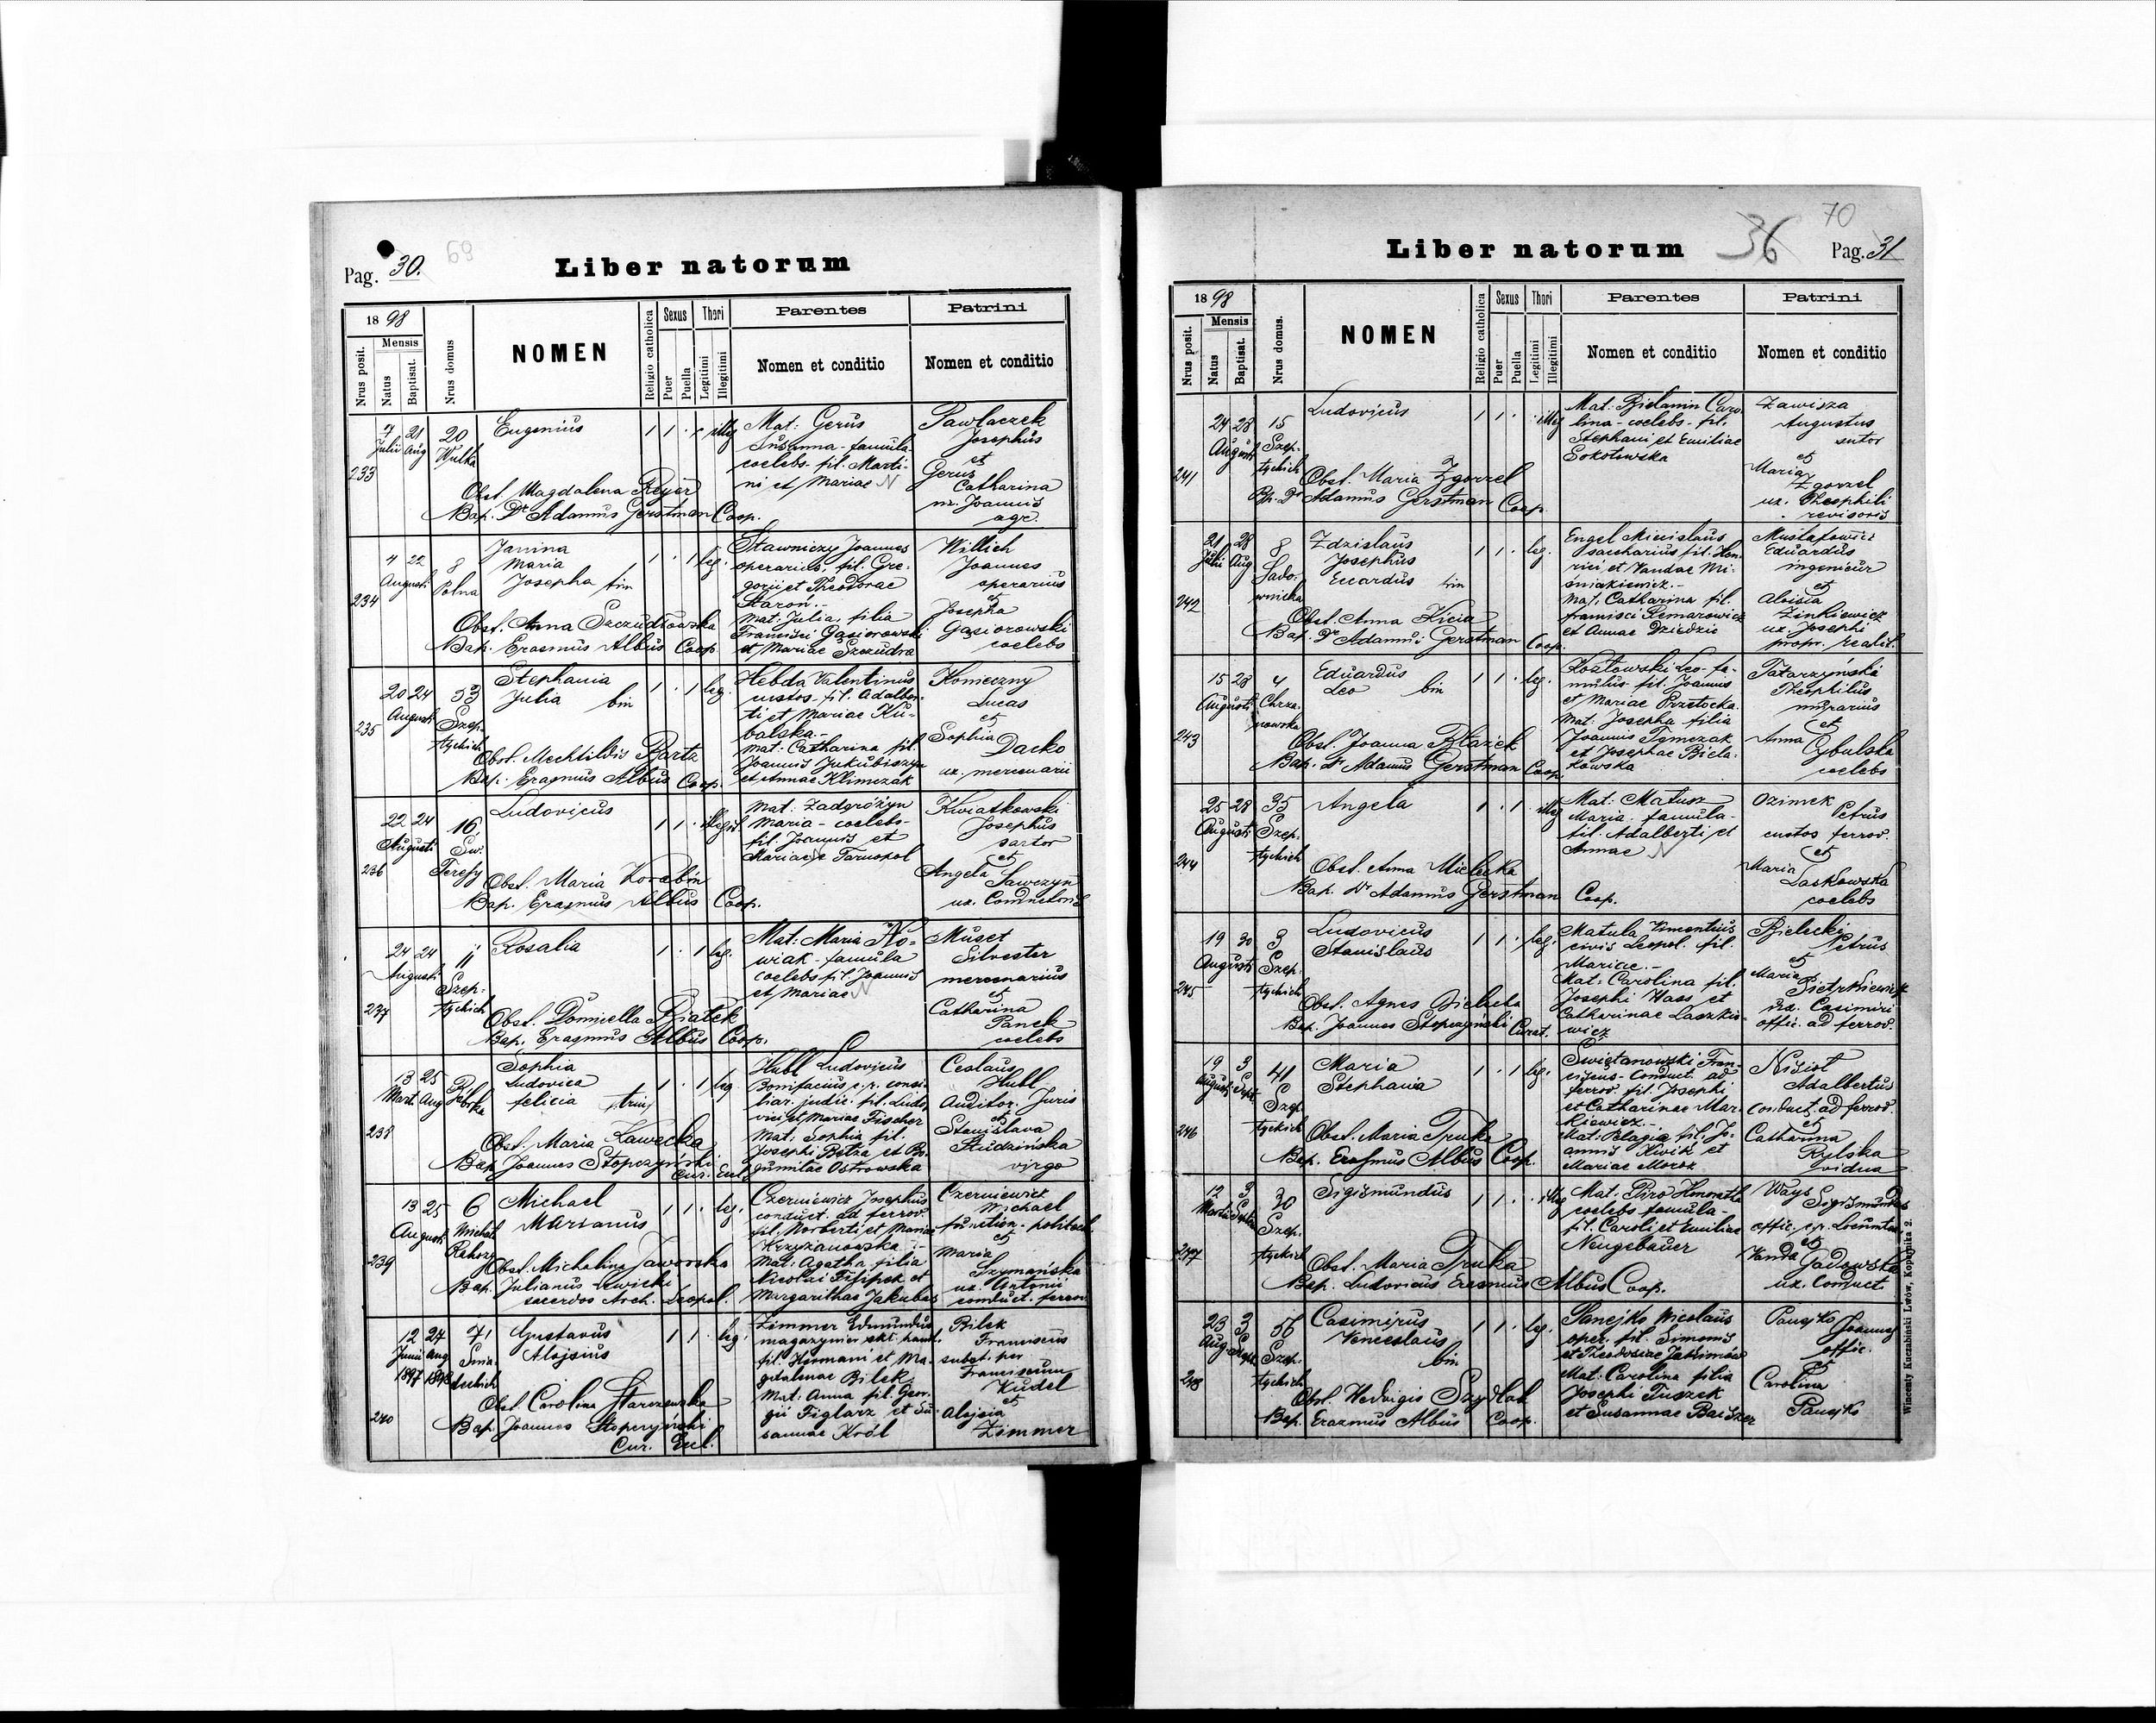 Pag. 30. 69
Liber natorum
18 98
Mensis
Nrus posit.
Natus
Baptisat.
Nrus domus
NOMEN
Religio catholica
Sexus
Puer
Puella
Thori
Legitimi
Illegitimi
Parentes
Nomen et conditio
Patrini
Nomen et conditio
233
7 21
Julii Aug
20
Wulka
Eugenius
1 1 . . illeg
Mat: Gerus
Susanna - famula
coelebs - fil. Marti-
ni et Mariae N
Pawlaczek
Josephus
et
Gerus
Catharina
ux. Joannis
agr.
Obst. Magdalena Reyer
Bap. Dr Adamus Gerstman Coop.
234
4 22
Augusti
8
Polna
Janina
Maria
Josepha trin
1 . 1 leg.
Stawniczy Joannes
operarius, fil. Gre-
gorii et Theodorae
Staroń.-
Mat: Julia, filia
Francisci Gąsiorowski
et Mariae Szczudra
Willich
Joannes
operarius
et
Josepha
Gąsiorowski
coelebs
Obst. Anna Szczudłowska
Bap. Erasmus Albus Coop.
235
20 24
Augusti
53
Szep-
tyckich
Stephania
Julia bin
1 . 1 leg.
Hebda Valentinus
custos - fil. Adalber-
ti et Mariae Ku-
balska.-
Mat: Catharina fil.
Joannis Jakubiszyn
et Annae Klimczak
Konieczny
Lucas
et
Sophia
Dacko
ux. mercenarii
Obst. Mechtildis Bartz
Bap. Erasmus Albus Coop.
236
22 24
Augusti
16
Św.
Teresy
Ludovicus
1 1 . illegit.
Mat: Zadgróżyn
Maria - coelebs -
fil. Joannis et
Mariae Tarnopol
Kwiatkowski
Josephus
sartor
et
Angela
Sawczyn
ux. Conductoris
Obst. Maria Korabin
Bap. Erasmus Albus Coop.
237
24 24
Augusti
11
Szep-
tyckich
Rosalia
1 . 1 leg.
Mat: Maria No-
wiak - famula
coelebs fil. Joannis
et Mariae N
Muset
Silvester
mercenarius
et
Catharina
Panek
coelebs
Obst. Domicella Piątek
Bap. Erasmus Albus Coop.
238
13 25
Mart. Aug
Sophia
Ludovica
felicia trin
1 . 1 leg.
Hubl Ludovicus
Bonifacius c.r. consi-
liar. judic. fil. Ludo-
vici et Mariae Fischer
Mat: Sophia fil.
Josephi Betza et Bo-
gumilae Ostrowska
Ceslaus
Hubl
Auditor. Juris
et
Stanislava
Studzińska
virgo
Obst. Maria Kawecka
Bap. Joannes Stopczyński
Cur. Eccl.
239
13 25
Augusti
6
Michael
Marianus
1 1 . leg.
Czerniewicz Josephus
conduct. ad ferrov.
fil. Norberti et Mariae
Krzyżanowska.-
Mat: Agatha filia
Nicolai Filipek et
Margarithae Jakubas
Czerniewicz
Michael
et
Maria
Szymańska
ux. Antonii
conduct. ferrov.
Obst. Michalina Jaworska
Bap. Julianus Lewicki
sacerdos Arch. Leopol.
240
12 24
Junii Aug
1897 1898
71
Gustavus
Aloisius
1 1 . leg.
Zimmer Edmundus
fil. Hermani et Ma-
gdalenae Bilek
Mat: Anna fil. Geor-
gii Figlarz et Su-
sannae Król
Bilek
Franciscus
subst. per
Franciscum
Kudel
et
Aloisia
Zimmer
Obst. Carolina Starzewska
Bap. Joannes Stopczyński
Cur. Eccl.
36 70
Liber natorum
Pag. 31
18 98
Mensis
Nrus posit.
Natus
Baptisat.
Nrus domus.
NOMEN
Religio catholica
Sexus
Puer
Puella
Thori
Legitimi
Illegitimi
Parentes
Nomen et conditio
Patrini
Nomen et conditio
241
24 28
Augusti
15
Szep-
tyckich
Ludovicus
1 1 . . illeg
Mat: Bielamin Caro-
lina - coelebs - fil.
Stephani et Emiliae
Sokołowska
Zawisza
Augustus
sutor
et
Maria
Zgorzel
ux. Theophili
revisoris
Obst. Maria Zgorzel
Bp. Dr Adamus Gerstman Coop
242
21 28
Julii Aug
8
Sado-
wnicka
Zdzislaus
Josephus
Eduardus trin
1 1 . leg.
Engel Micislaus
saccharius fil. Hen-
rici et Vandae Wi-
śniakiewicz.-
Mat. Catharina fil.
Francisci Remarowicz
et Annae Dziedzic
Mustafowicz
Eduardus
ingenieur
et
Aloisia
Zinkiewicz
ux. Josephi
propr. realit.
Obst. Anna Kicia
Bap. Dr Adamus Gerstman Coop.
243
15 28
Augusti
4
Chrza-
nowska
Eduardus
Leo bin
1 1 . leg.
Kozłowski Leo - fa-
mulus fil. Joannis
et Mariae Przetocka
Mat. Josepha filia
Joannis Tymczak
et Josephae Biela-
kowska
Tatarzyński
Theophilus
murarius
et
Anna
Cybulska
coelebs
Obst. Joanna Błażek
Bap. Dr Adamus Gerstman Coop.
244
25 28
Augusti
35
Szep-
tyckich
Angela
1 . 1 illeg
Mat: Matusz
Maria - famula -
fil. Adalberti et
Annae N
Ozimek
Petrus
custos ferrov.
et
Maria
Laskowska
coelebs
Obst. Anna Mielecka
Bap. Dr Adamus Gerstman Coop.
245
19 30
Augusti
3
Szep-
tyckich
Ludovicus
Stanislaus
1 1 . leg.
Matula Vincentius
civis Leopol. fil.
Mariae.-
Mat: Carolina fil.
Josephi Hass et
Catharinae Laszkie-
wicz
Bielecki
Petrus
et
Maria
Pietrkiewicz
vid. Casimiri
offic. ad ferrov.
Obst. Agnes Bielecka
Bap. Joannes Stopczyński Curat.
246
19 3
Augusti Sept.
41
Szep-
tyckich
Maria
Stephania
1 . 1 leg.
Świętanowski Fran-
ciscus - Conduct. ad
ferrov. fil. Josephi
et Catharinae Mar-
kiewicz.-
Mat: Pelagia fil. Jo-
annis Kwik et
Mariae Moroz
Nizioł
Adalbertus
conduct. ad ferrov.
et
Catharina
Rylska
vidua
Obst. Maria Truka
Bap. Erasmus Albus Coop.
247
12 3
Martii Septem
30
Szep-
tyckich
Sigismundus
1 1 . illeg
Mat: Piro Honorata
coelebs famula -
fil. Caroli et Emiliae
Neugebauer
Ways
Sigismundus
offic. c.r. Locumten.
et
Vanda Gadowska
ux. Conduct
Obst. Maria Truka
Bap. Ludovicus Erasmus Albus Coop.
248
23 3
Aug Sept.
56
Szep-
tyckich
Casimirus
Venceslaus
bin
1 1 . leg.
Panejko Nicolaus
oper. fil. Simonis
et Theodosiae Jakimów
Mat: Carolina filia
Josephi Tuszek
et Susannae Baiszer
Panejko
Joannes
offic.
et
Carolina
Panejko
Obst. Hedvigis Szydłak
Bap. Erazmus Albus Coop.
Wincenty Kuczabiński Lwów, Kopernika 2.